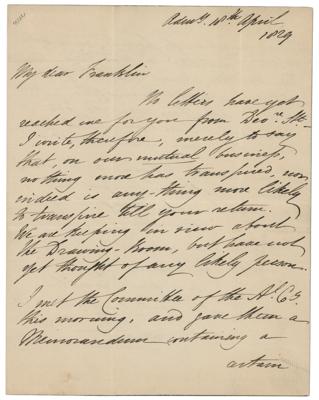 Adm.y 18th April
1829
My dear Franklin
No letters have yet
reached me for you from Devo.n St.
I write, therefore, merely to say
that, on our mutual business,
nothing more has transpired, nor
indeed is any-thing more likely
to transpire till your return.
We are keeping in view about
the Drawing-Room, but have not
yet thought of any likely person.
I met the Committee of the
this morning, and gave them a
Memorandum containing a
certain